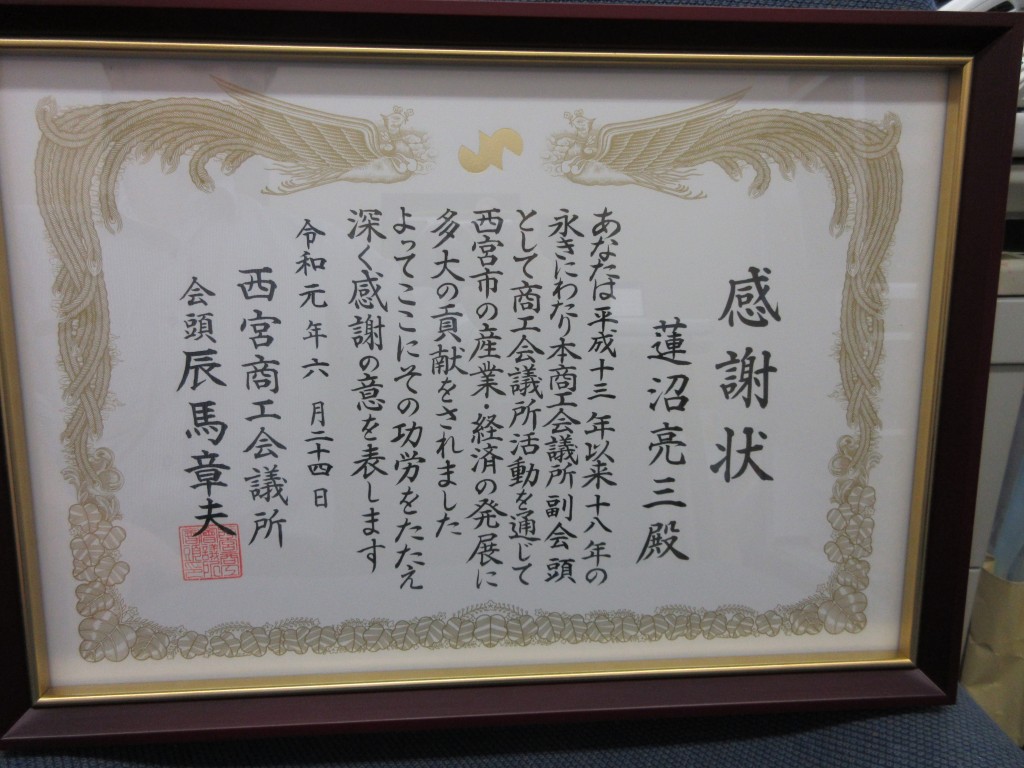 感謝状
蓮沼亮三殿
あなたは平成十三年以来十八年の
永きにわたり本商工会議所副会頭
として商工会議所活動を通じて
西宮市の産業・経済の発展に
多大の貢献をされました
よってここにその功労をたたえ
深く感謝の意を表します
令和元年六月二十四日
西宮商工会議所
会頭 辰馬章夫